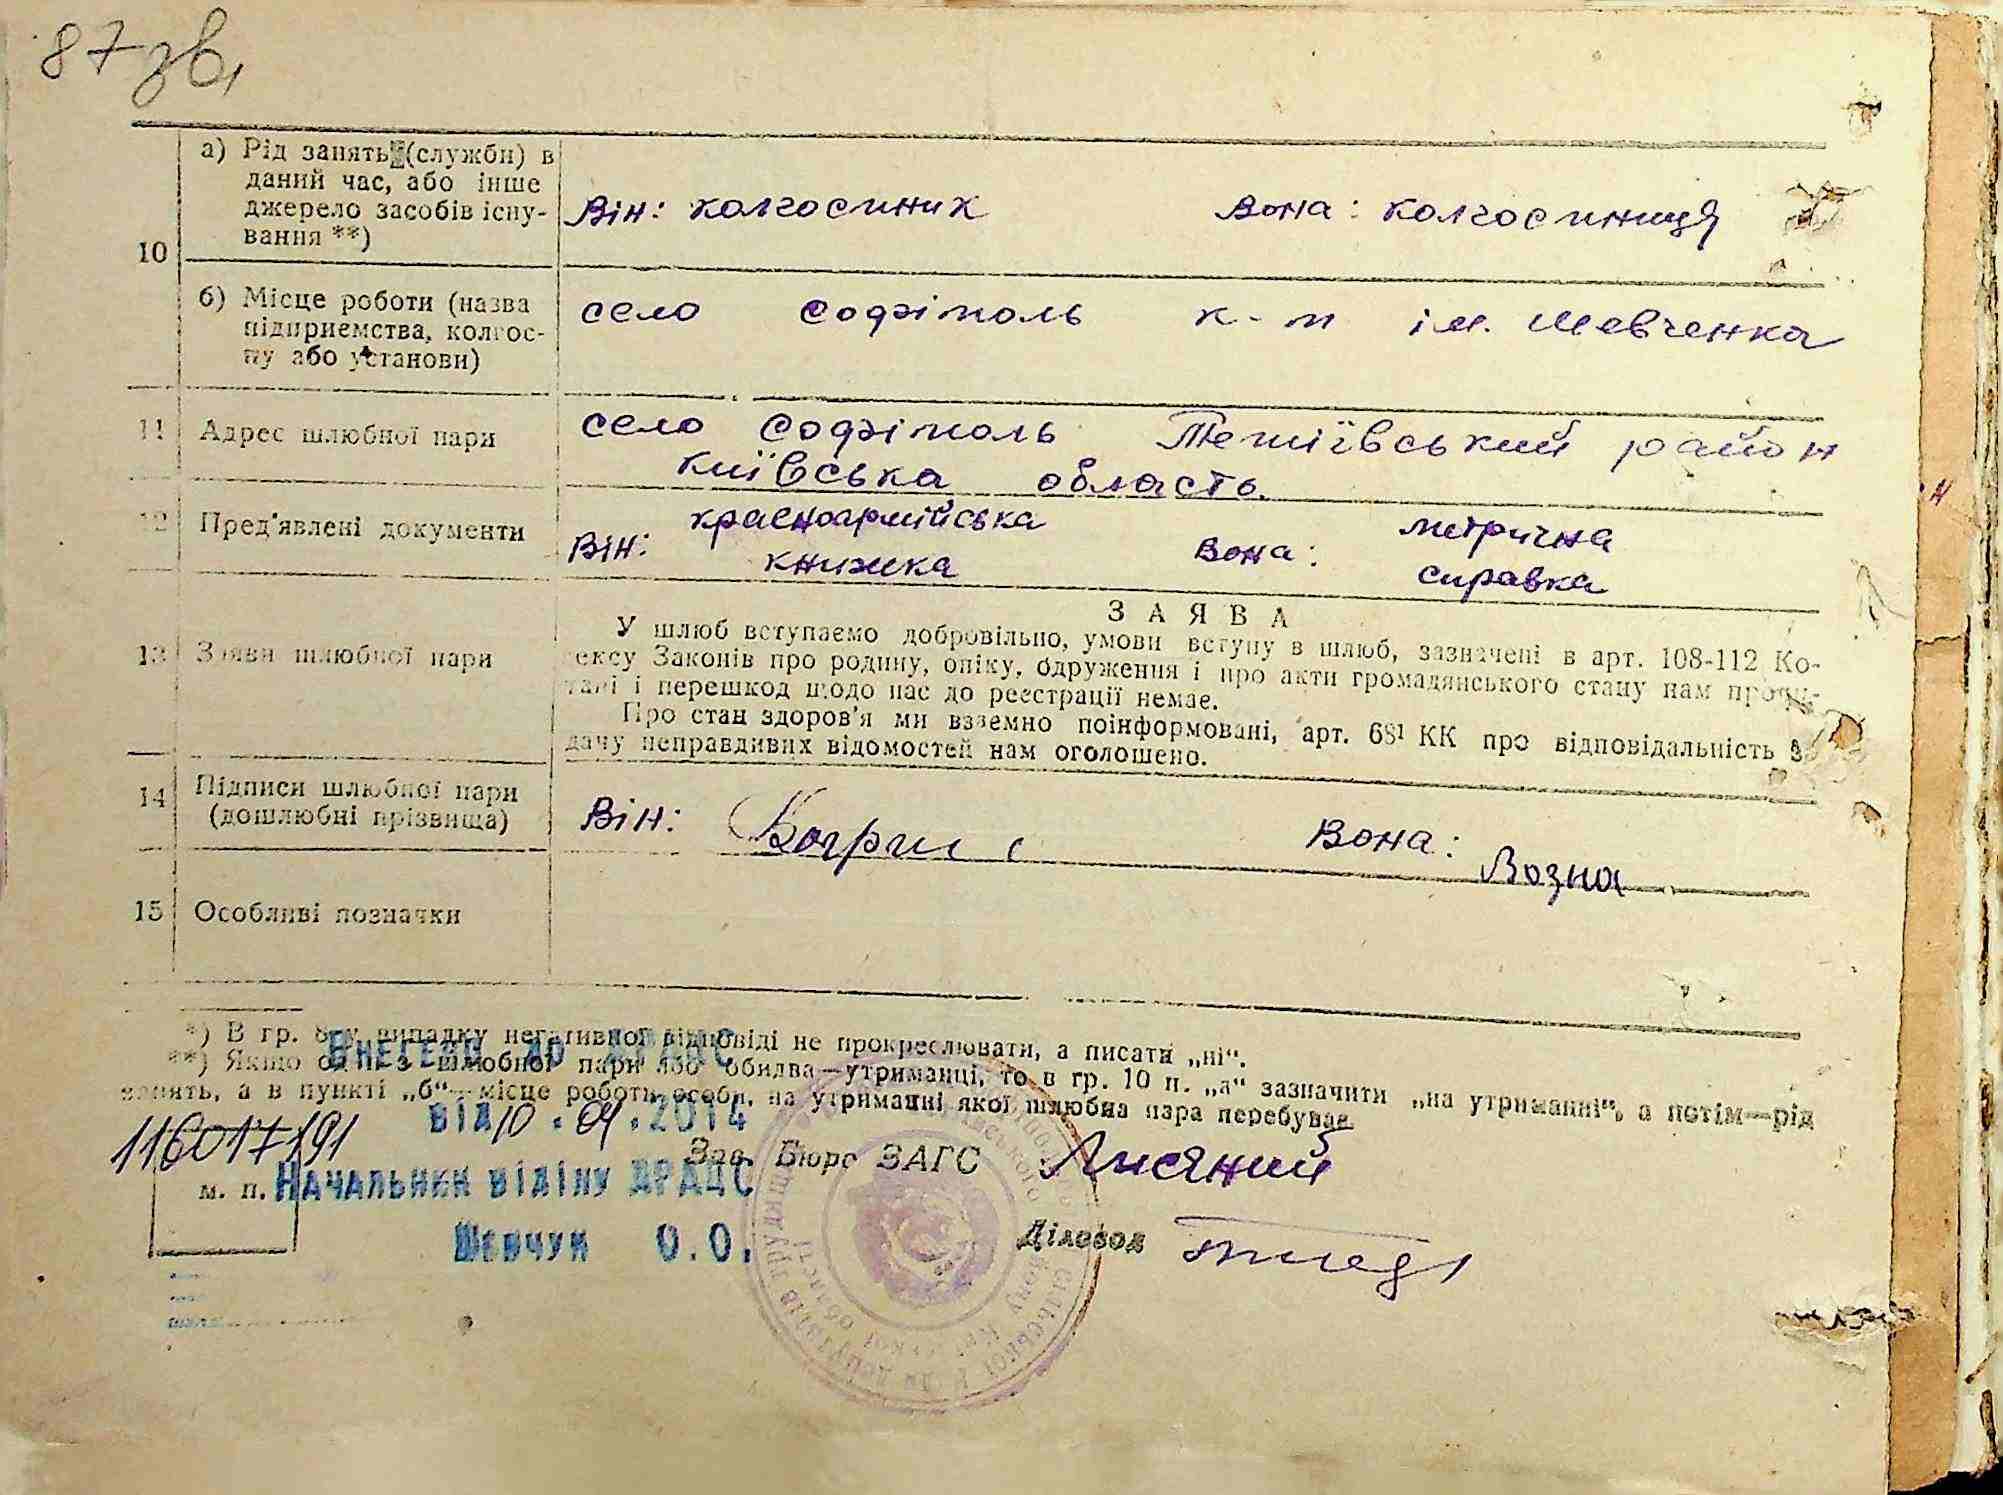 87 зв.
а) Рід занять (служби) в
даний час, або інше
джерело засобів існу-
вання **)
10
Він: колгоспник Вона: колгоспниця
б) Місце роботи (назва
підприємства, колгос-
пу або установи)
село Софіполь к-п ім. Шевченка
11 Адрес шлюбної пари
село Софіполь Тетіївський район
Київська область
12 Пред'явлені документи
Він: красноармійська
книжка
Вона: метрична
справка
13 Заяви шлюбної пари
ЗАЯВА
У шлюб вступаємо добровільно, умови вступу в шлюб, зазначені в арт. 108-112 Ко-
ексу Законів про родину, опіку, одруження і про акти громадянського стану нам прочи-
тані і перешкод щодо нас до реєстрації немає.
Про стан здоров'я ми взаємно поінформовані, арт. 68¹ КК про відповідальність за
дачу неправдивих відомостей нам оголошено.
14 Підписи шлюбної пари
(дошлюбні прізвища)
Він: Вона: Возна
15 Особливі позначки
*) В гр. 8 у випадку негативної відповіді не прокреслювати, а писати „ні“.
**) Якщо один з шлюбної пари або обидва—утриманці, то в гр. 10 п. „а“ зазначити „на утриманні“, а потім—рід
занять, а в пункті „б“—місце роботи особи, на утриманні якої шлюбна пара перебуває
Внесено до ДРАЦС
від 10.04.2014
116017191
Зав. Бюро ЗАГС Лисяний
м. п. Начальник відділу ДРАЦС
Шевчук О.О.
Діловод